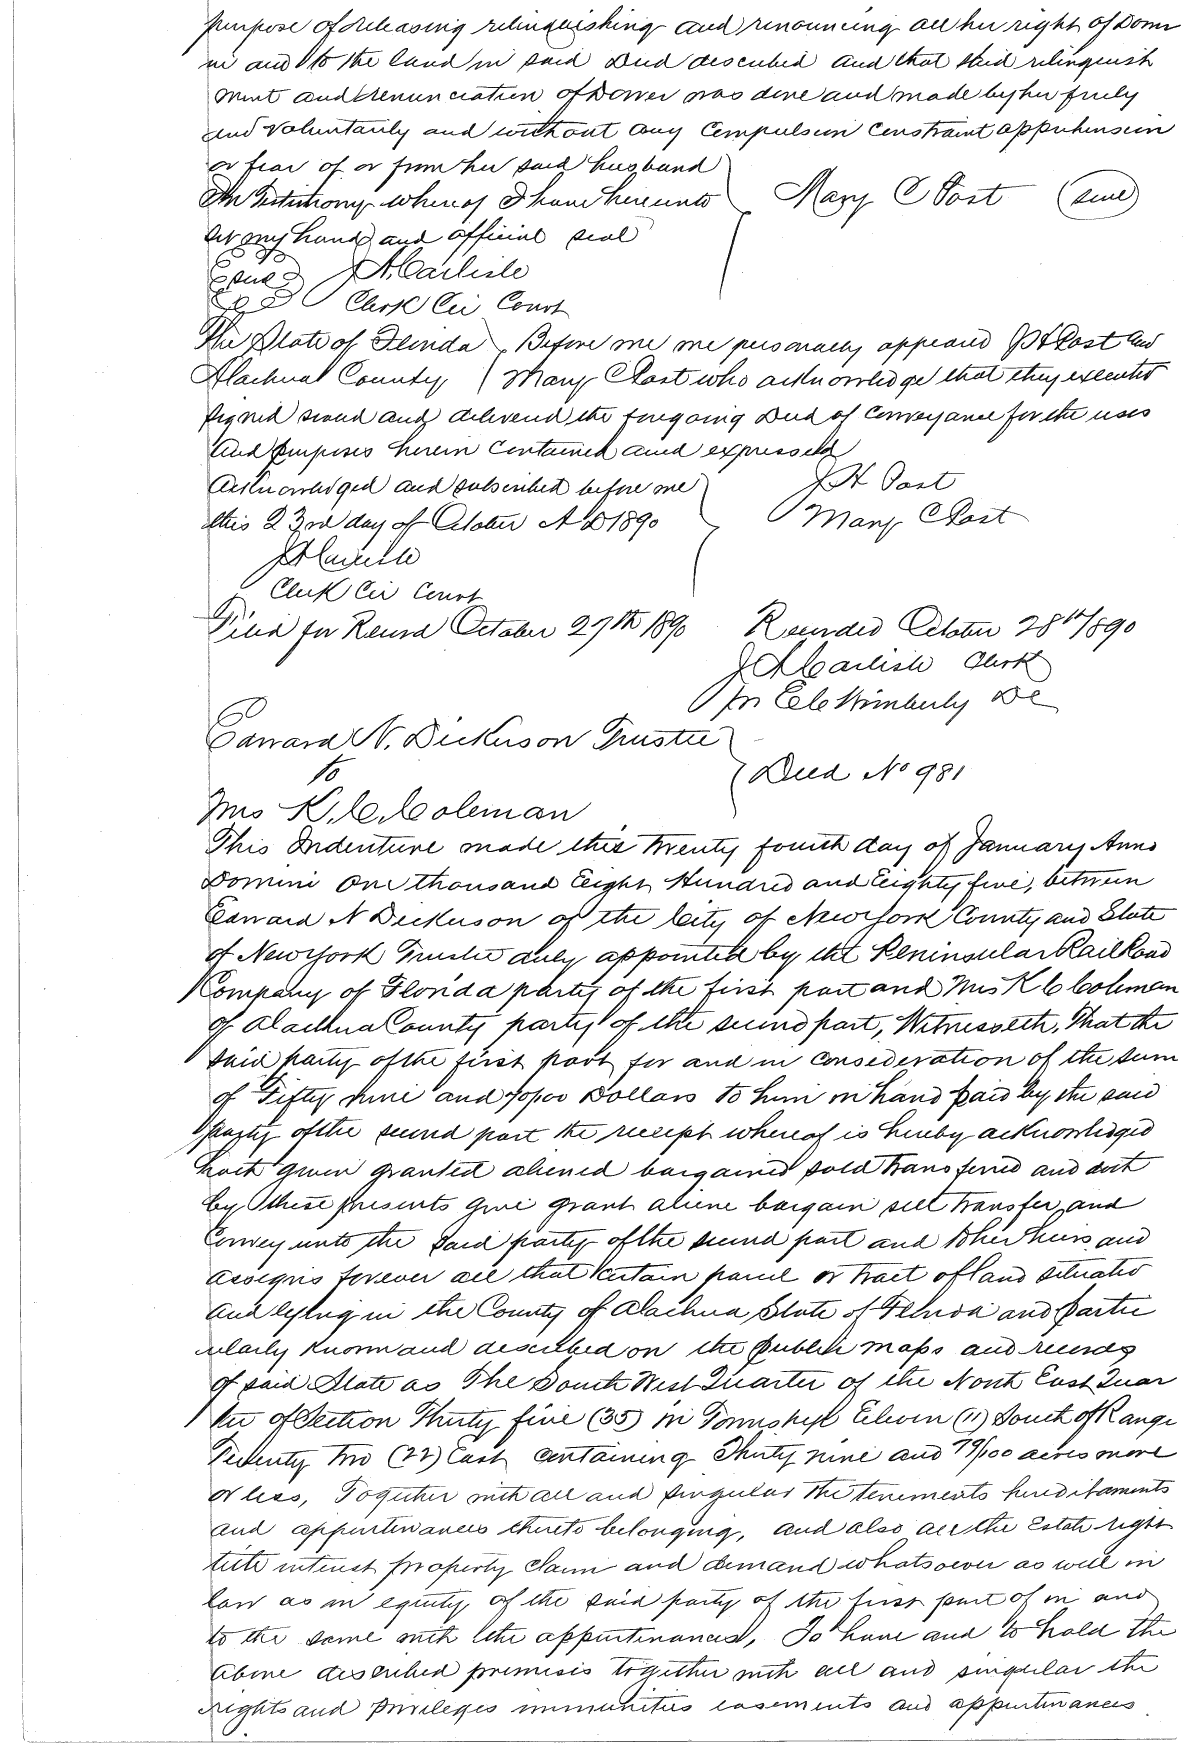 purpose of releasing relinquishing and renouncing all her right of Dower
in and to the land in said Deed described and that said relinquish
ment and renunciation of Dower was done and made by her freely
and voluntarily and without any compulsion constraint apprehension
or fear of or from her said husband
In Testimony whereof I have hereunto
Mary C Post (seal)
set my hand and official seal
(seal) J A Carlisle
Clerk Cir Court
The State of Florida
Alachua County
Before me me personally appeared J H Post and
Mary C Post who acknowledge that they executed
signed sealed and delivered the foregoing Deed of Conveyance for the uses
and purposes herein contained and expressed
Acknowledged and subscribed before me
this 23rd day of October A D 1890
J H Post
Mary C Post
J A Carlisle
Clerk Cir Court
Filed for Record October 27th 1890 Recorded October 28th 1890
J A Carlisle Clerk
Wimberly DC
Edward N. Dickerson Trustee
to
Deed No 981
Mrs K. C. Coleman
This Indenture made this Twenty fourth day of January Anno
Domini One thousand Eight Hundred and Eighty five, between
Edward N Dickerson of the City of New York County and State
of New York Trustee duly appointed by the Peninsular Rail Road
Company of Florida party of the first part and Mrs K C Coleman
of Alachua County party of the second part, Witnesseth, That the
said party of the first part for and in consideration of the sum
of Fifty nine and 70/100 Dollars to him in hand paid by the said
party of the second part the receipt whereof is hereby acknowledged
hath given granted aliened bargained sold transferred and doth
by these presents give grant aliene bargain sell transfer and
convey unto the said party of the second part and to her heirs and
assigns forever all that certain parcel or tract of land situated
and lying in the County of Alachua State of Florida and partic
ularly known and described on the public maps and records
of said State as The South West Quarter of the North East Quar
ter of Section Thirty five (35) in Township Eleven (11) South of Range
Twenty Two (22) East containing Thirty nine and 79/100 acres more
or less, Together with all and singular the tenements hereditaments
and appurtenances thereto belonging, and also all the Estate right
title interest property claim and demand whatsoever as well in
law as in equity of the said party of the first part of in and
to the same with the appurtenances, To have and to hold the
above described premises together with all and singular the
rights and privileges immunities easements and appurtenances